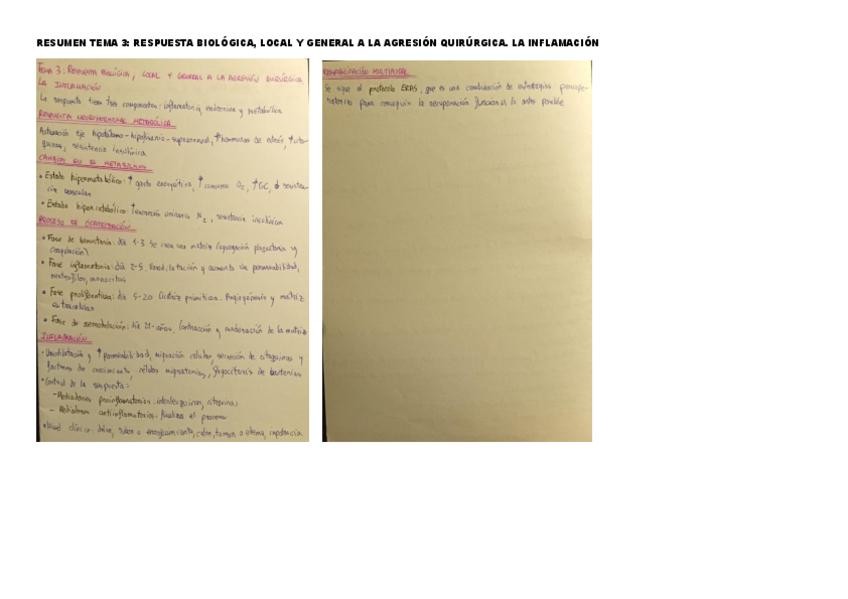 RESUMEN TEMA 3: RESPUESTA BIOLÓGICA, LOCAL Y GENERAL A LA AGRESIÓN QUIRÚRGICA. LA INFLAMACIÓN
TEMA 3: RESPUESTA BIOLÓGICA, LOCAL Y GENERAL A LA AGRESIÓN QUIRÚRGICA.
LA INFLAMACIÓN
La respuesta tiene tres componentes: inflamatoria, endocrina y metabólica
RESPUESTA NEUROHORMONAL METABÓLICA
Activación eje hipotálamo-hipofisario-suprarrenal, ↑ hormonas de estrés, ↑ cito-
quinas, resistencia insulínica
CAMBIOS EN EL METABOLISMO
• Estado hipermetabólico: ↑ gasto energético, ↑ consumo O2, ↑ GC, ↓ resisten-
cia vascular
• Estado hipercatabólico: ↑ excreción urinaria N2, resistencia insulínica
PROCESO DE CICATRIZACIÓN
• Fase de hemostasia: día 1-3 Se crea una matriz (agregación plaquetaria y
coagulación)
• Fase inflamatoria: día 2-5. Vasodilatación y aumento de permeabilidad,
neutrófilos, monocitos
• Fase proliferativa: día 5-20 Cicatriz primitiva. Angiogénesis y matriz
extracelular
• Fase de remodelación: día 21-años. Contracción y maduración de la matriz
INFLAMACIÓN
• Vasodilatación y ↑ permeabilidad, migración celular, secreción de citoquinas y
factores de crecimiento, células migratorias, fagocitosis de bacterias
• Control de la respuesta:
- Mediadores proinflamatorios: interleuquinas, citoquinas
- Mediadores antiinflamatorios: finalizan el proceso
clínico: dolor, rubor o enrojecimiento, calor, tumor o edema, impotencia
REHABILITACIÓN MULTIMODAL
Se sigue el protocolo ERAS, que es una combinación de estrategias periope-
ratorias para conseguir la recuperación funcional lo antes posible